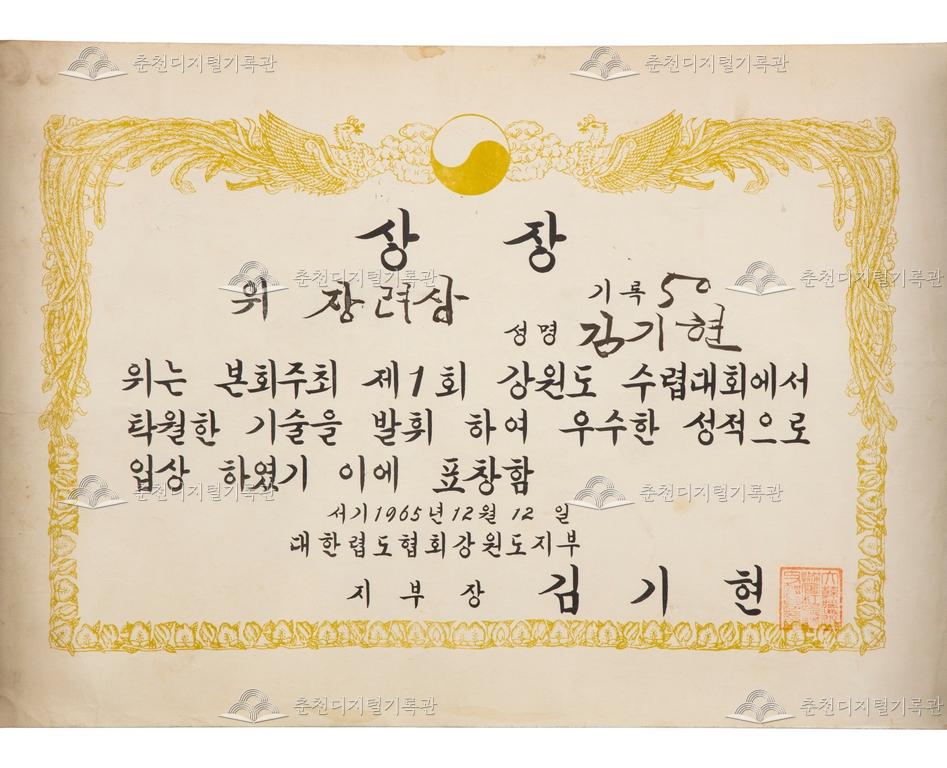 춘천디지털기록관 춘천디지털기록관
상 장
위 장려상 기록 50
성명 김기현
위는 본회주최 제1회 강원도 수렵대회에서
탁월한 기술을 발휘 하여 우수한 성적으로
입상 하였기 이에 표창함
서기 1965년 12월 12일
대한렵도협회강원도지부
지부장 김기현
춘천디지털기록관 춘천디지털기록관
춘천디지털기록관 춘천디지털기록관
춘천디지털기록관 춘천디지털기록관